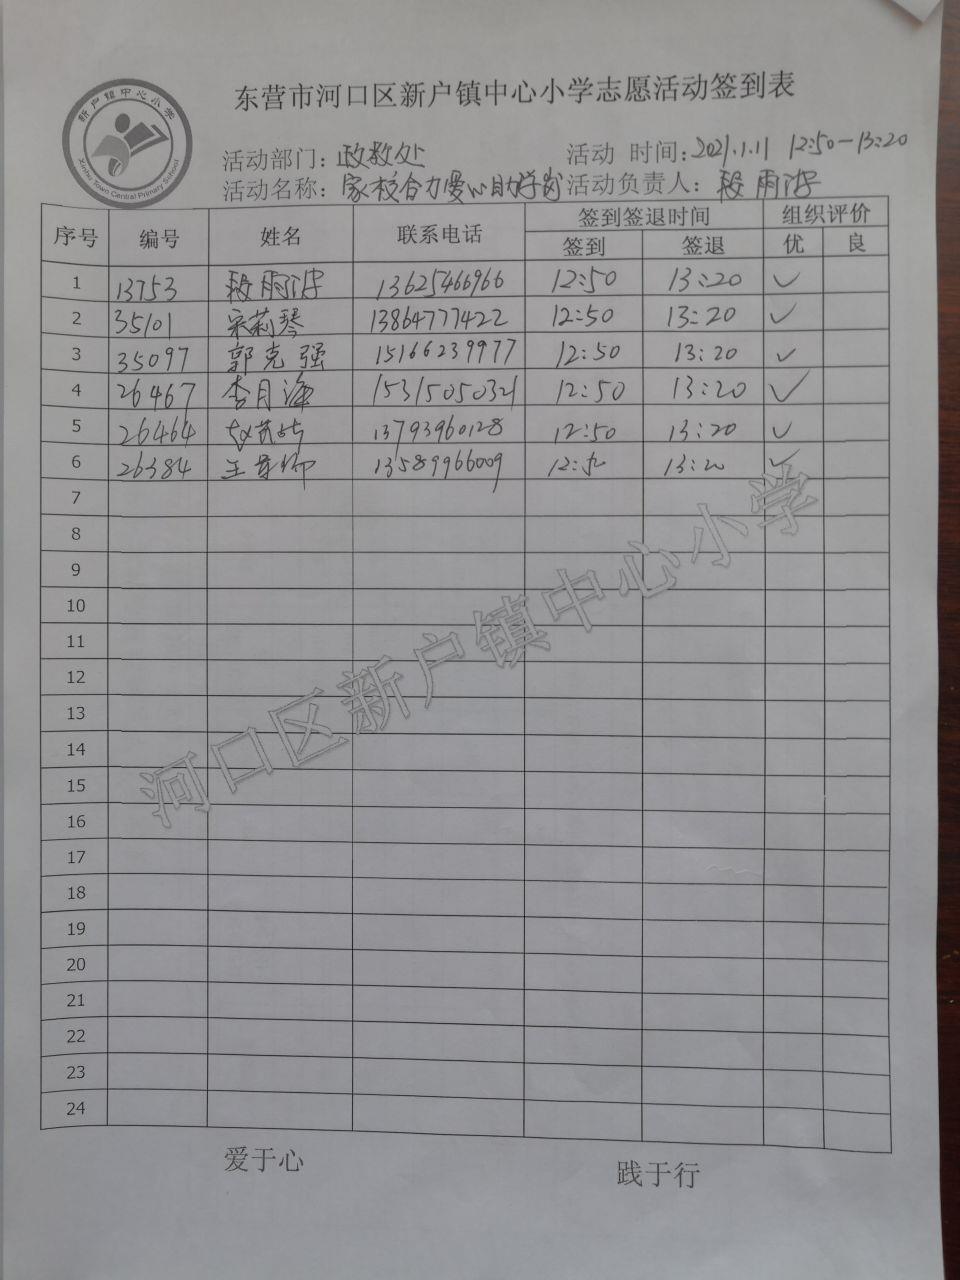 新户镇中心小学
Xinhu Town Central Primary School
东营市河口区新户镇中心小学志愿活动签到表
活动部门：政教处 活动 时间：2021.1.11 12:50-13:20
活动名称：家校合力爱心助学岗 活动负责人：段雨
序号 编号 姓名 联系电话 签到签退时间 组织评价
签到 签退 优 良
1 13753 段雨 13625466966 12:50 13:20 ✓
2 35101 宋莉琴 13864777422 12:50 13:20 ✓
3 35097 郭克强 15166239977 12:50 13:20 ✓
4 26467 李月海 15315050321 12:50 13:20 ✓
5 26464 赵 13793960128 12:50 13:20 ✓
6 26384 王 13589966009 12:50 13:20 ✓
7
8
9
10
11
12
13
14
15
16
17
18
19
20
21
22
23
24
河口区新户镇中心小学
爱于心 践于行